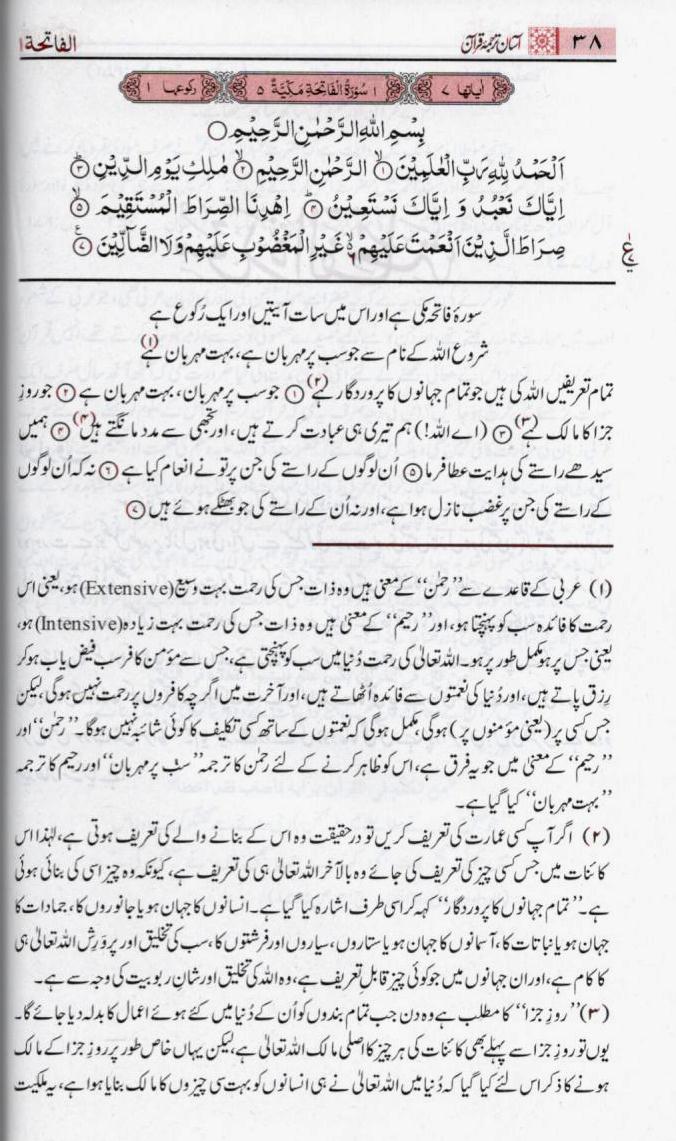 ۳۸ آسان ترجمۂ قرآن الفاتحة ۱
اٰیاتها ۷ ۱ سُوْرَةُ الْفَاتِحَةِ مَكِّيَّةٌ ۵ رکوعها ۱
بِسْمِ اللّٰهِ الرَّحْمٰنِ الرَّحِيْمِ ○
اَلْحَمْدُ لِلّٰهِ رَبِّ الْعٰلَمِيْنَ ۙ﴿۱﴾ الرَّحْمٰنِ الرَّحِيْمِ ۙ﴿۲﴾ مٰلِكِ يَوْمِ الدِّيْنِ ؕ﴿۳﴾
اِيَّاكَ نَعْبُدُ وَ اِيَّاكَ نَسْتَعِيْنُ ؕ﴿۴﴾ اِهْدِنَا الصِّرَاطَ الْمُسْتَقِيْمَ ۙ﴿۵﴾
صِرَاطَ الَّذِيْنَ اَنْعَمْتَ عَلَيْهِمْ ۙ۬ۦ غَيْرِ الْمَغْضُوْبِ عَلَيْهِمْ وَلَا الضَّآلِّيْنَ ﴿۷﴾
سورۂ فاتحہ مکی ہے اور اس میں سات آیتیں اور ایک رُکوع ہے
شروع اللہ کے نام سے جو سب پر مہربان ہے، بہت مہربان ہے (۱)
تمام تعریفیں اللہ کی ہیں جو تمام جہانوں کا پروردگار ہے (۲) ﴿۱﴾ جو سب پر مہربان، بہت مہربان ہے ﴿۲﴾ جو روزِ
جزا کا مالک ہے (۳) ﴿۳﴾ (اے اللہ!) ہم تیری ہی عبادت کرتے ہیں، اور تجھی سے مدد مانگتے ہیں (۴) ﴿۴﴾ ہمیں
سیدھے راستے کی ہدایت عطا فرما ﴿۵﴾ اُن لوگوں کے راستے کی جن پر تو نے انعام کیا ہے ﴿۶﴾ نہ کہ اُن لوگوں
کے راستے کی جن پر غضب نازل ہوا ہے، اور نہ اُن کے راستے کی جو بھٹکے ہوئے ہیں ﴿۷﴾
(۱) عربی کے قاعدے سے ”رحمٰن“ کے معنی ہیں وہ ذات جس کی رحمت بہت وسیع (Extensive) ہو، یعنی اس
رحمت کا فائدہ سب کو پہنچتا ہو، اور ”رحیم“ کے معنیٰ ہیں وہ ذات جس کی رحمت بہت زیادہ (Intensive) ہو،
یعنی جس پر ہو مکمل طور پر ہو۔ اللہ تعالیٰ کی رحمت دُنیا میں سب کو پہنچتی ہے، جس سے مؤمن کافر سب فیض یاب ہو کر
رِزق پاتے ہیں، اور دُنیا کی نعمتوں سے فائدہ اُٹھاتے ہیں، اور آخرت میں اگرچہ کافروں پر رحمت نہیں ہوگی، لیکن
جس کسی پر (یعنی مؤمنوں پر) ہوگی، مکمل ہوگی کہ نعمتوں کے ساتھ کسی تکلیف کا کوئی شائبہ نہیں ہوگا۔ ”رحمٰن“ اور
”رحیم“ کے معنیٰ میں جو یہ فرق ہے، اس کو ظاہر کرنے کے لئے رحمٰن کا ترجمہ ”سب پر مہربان“ اور رحیم کا ترجمہ
”بہت مہربان“ کیا گیا ہے۔
(۲) اگر آپ کسی عمارت کی تعریف کریں تو درحقیقت وہ اس کے بنانے والے کی تعریف ہوتی ہے، لہٰذا اس
کائنات میں جس کسی چیز کی تعریف کی جائے وہ بالآخر اللہ تعالیٰ ہی کی تعریف ہے، کیونکہ وہ چیز اسی کی بنائی ہوئی
ہے۔ ”تمام جہانوں کا پروردگار“ کہہ کر اسی طرف اشارہ کیا گیا ہے۔ انسانوں کا جہان ہو یا جانوروں کا، جمادات کا
جہان ہو یا نباتات کا، آسمانوں کا جہان ہو یا ستاروں، سیاروں اور فرشتوں کا، سب کی تخلیق اور پروَرِش اللہ تعالیٰ ہی
کا کام ہے، اور ان جہانوں میں جو کوئی چیز قابلِ تعریف ہے، وہ اللہ کی تخلیق اور شانِ ربوبیت کی وجہ سے ہے۔
(۳) ”روزِ جزا“ کا مطلب ہے وہ دن جب تمام بندوں کو اُن کے دُنیا میں کئے ہوئے اعمال کا بدلہ دیا جائے گا۔
یوں تو روزِ جزا سے پہلے بھی کائنات کی ہر چیز کا اصلی مالک اللہ تعالیٰ ہے، لیکن یہاں خاص طور پر روزِ جزا کے مالک
ہونے کا ذکر اس لئے کیا گیا کہ دُنیا میں اللہ تعالیٰ نے ہی انسانوں کو بہت سی چیزوں کا مالک بنایا ہوا ہے، یہ ملکیت